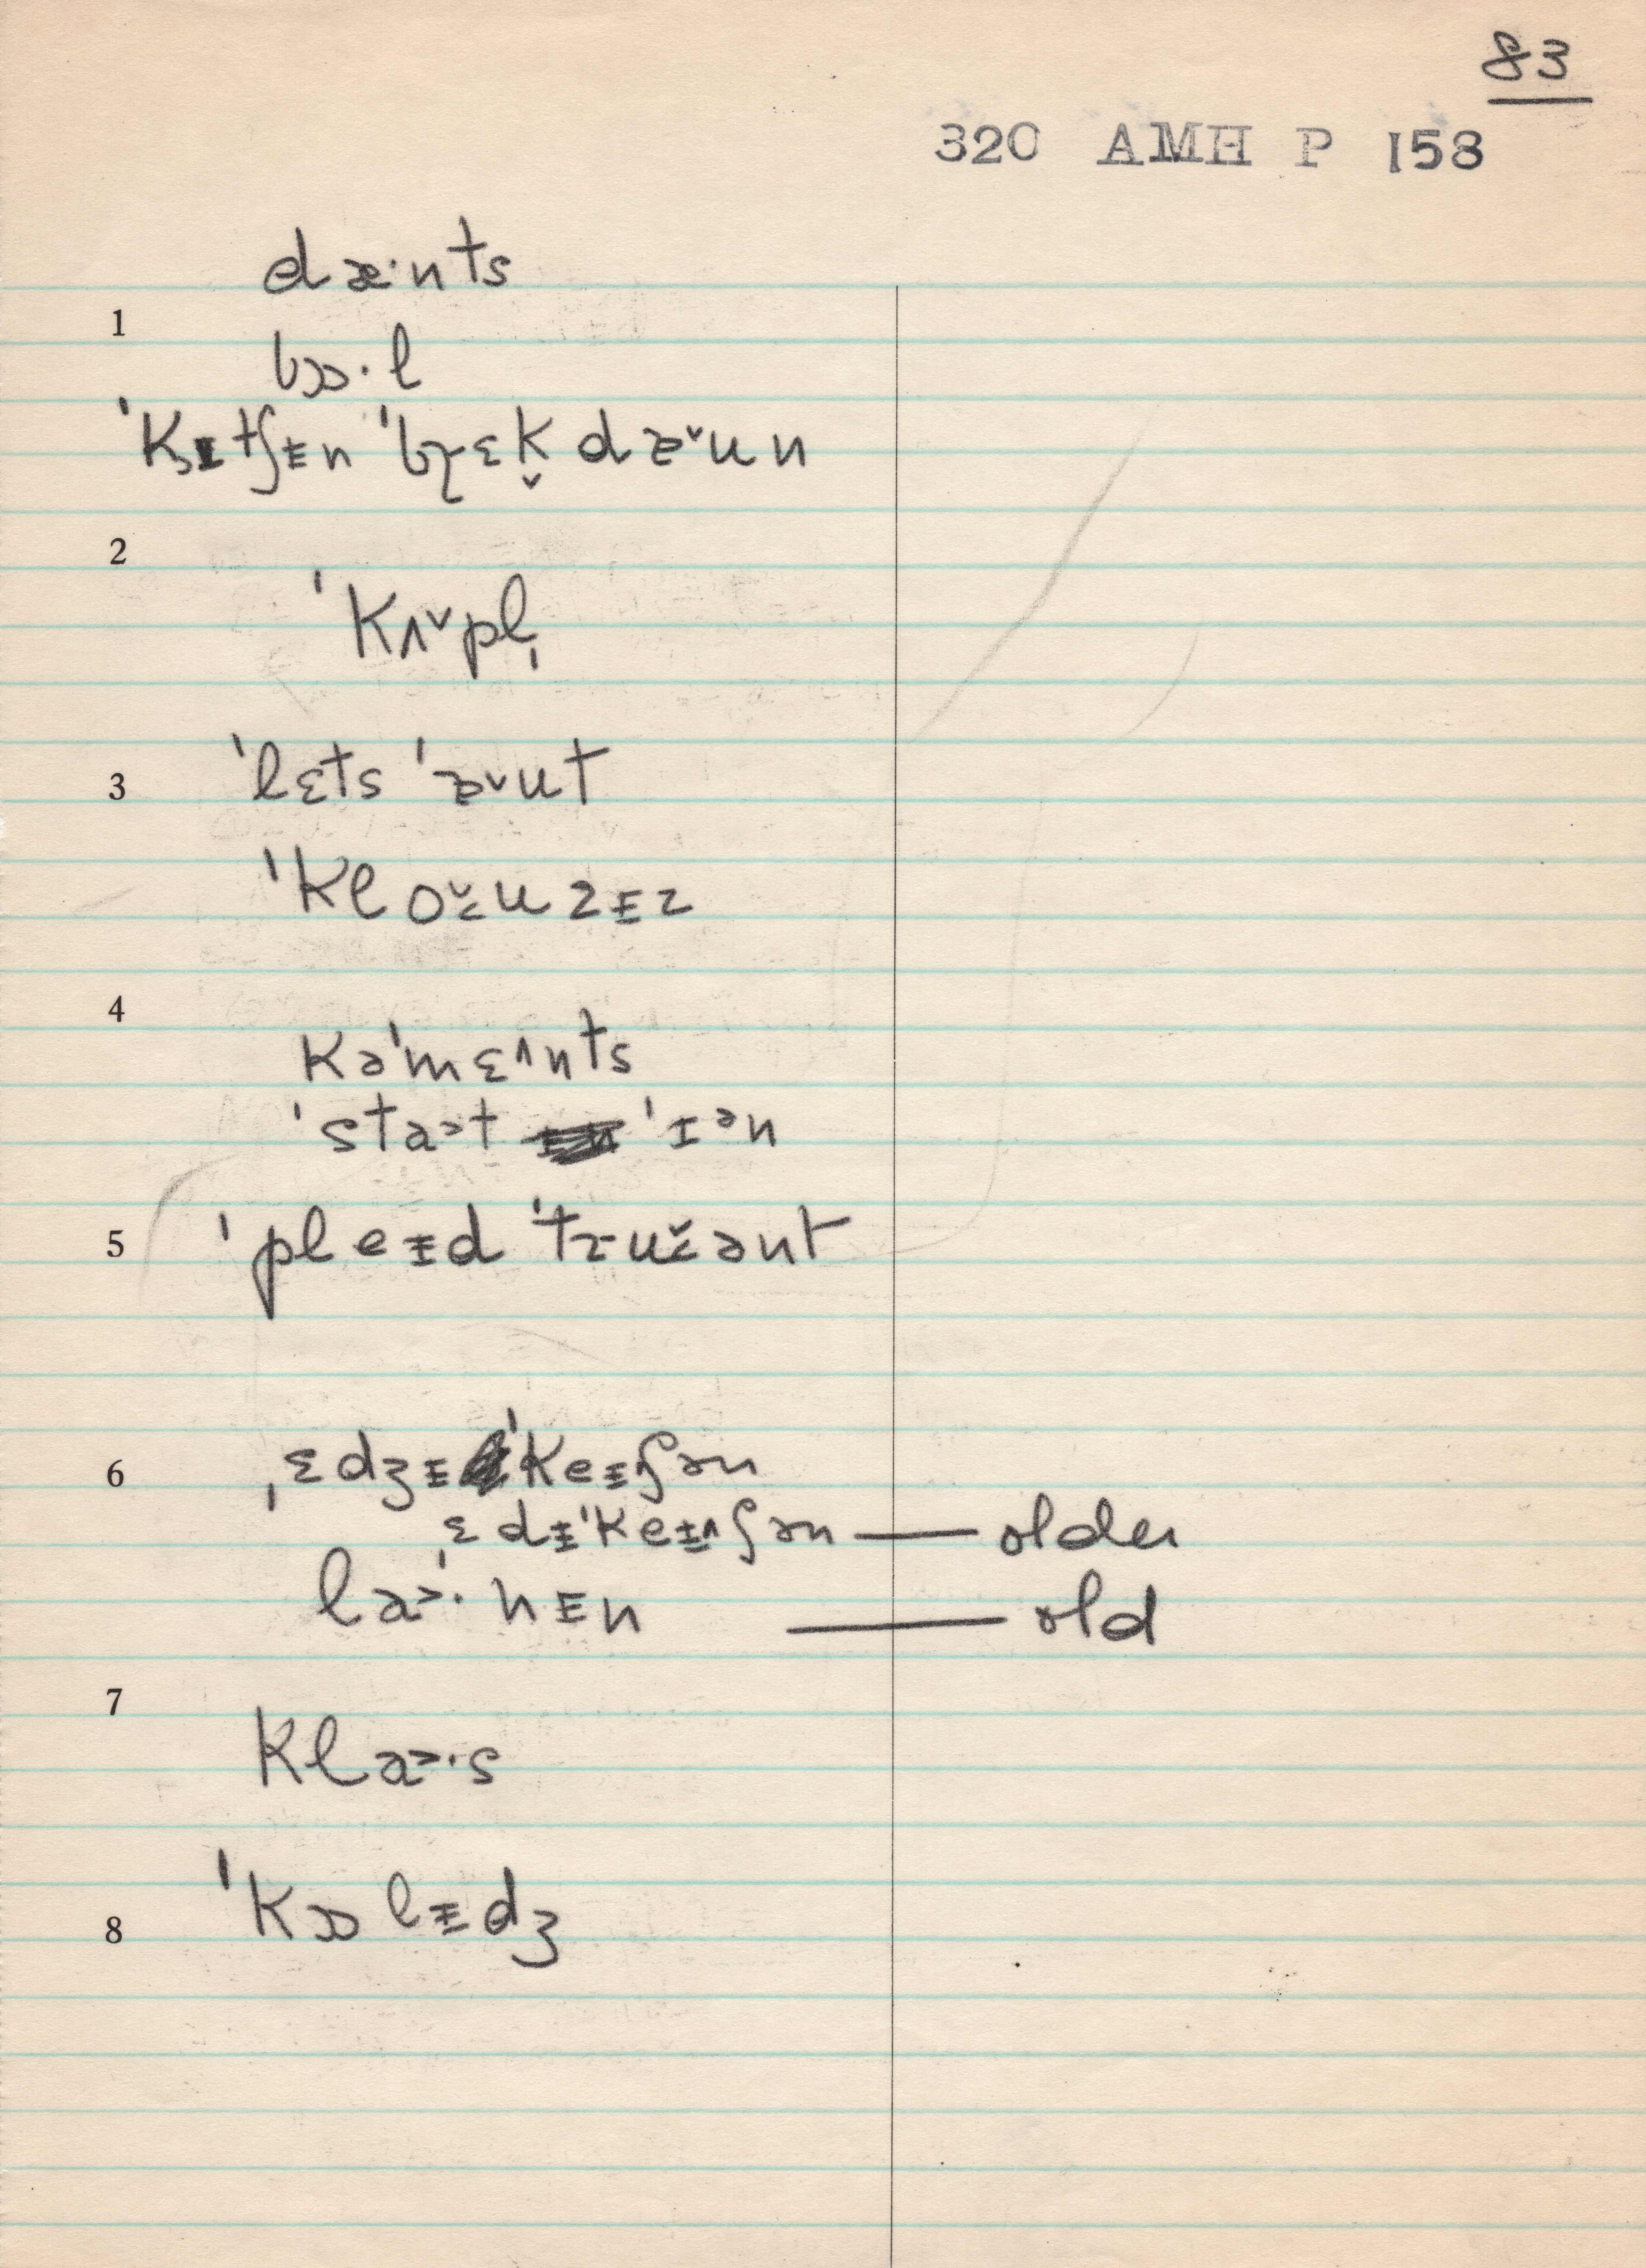 83
320 AMH P 158
dæ·nts
1
bɔ·l
ˈkɪtʃɨn ˈbɽɛk̬ dæ˅un
2
ˈkʌ˅pl̩
3 ˈlɛts ˈæ˅ut
ˈklo˅uzɨz
4
kəˈmɛ˄nts
ˈsta˃t ˈɪᵊn
5 ˈpleɨd ˈtɽu˅ənt
6 ˌɛdʒɨˈkeɨʃən
ˌɛdɨˈkeɨ˄ʃən — older
la˃·nɨn — old
7
kla˃·s
8 ˈkɔlɨdʒ